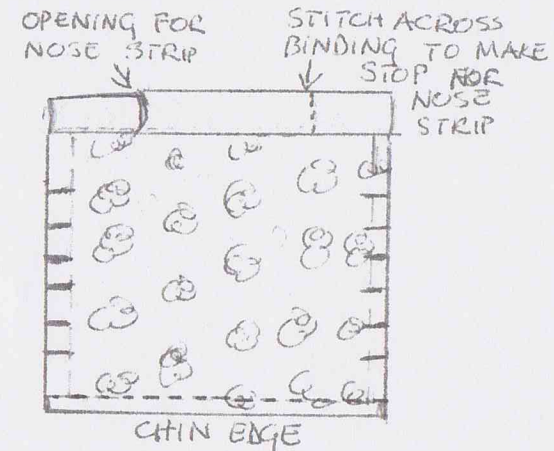 OPENING FOR
NOSE STRIP
STITCH ACROSS
BINDING TO MAKE
STOP FOR
NOSE
STRIP
CHIN EDGE